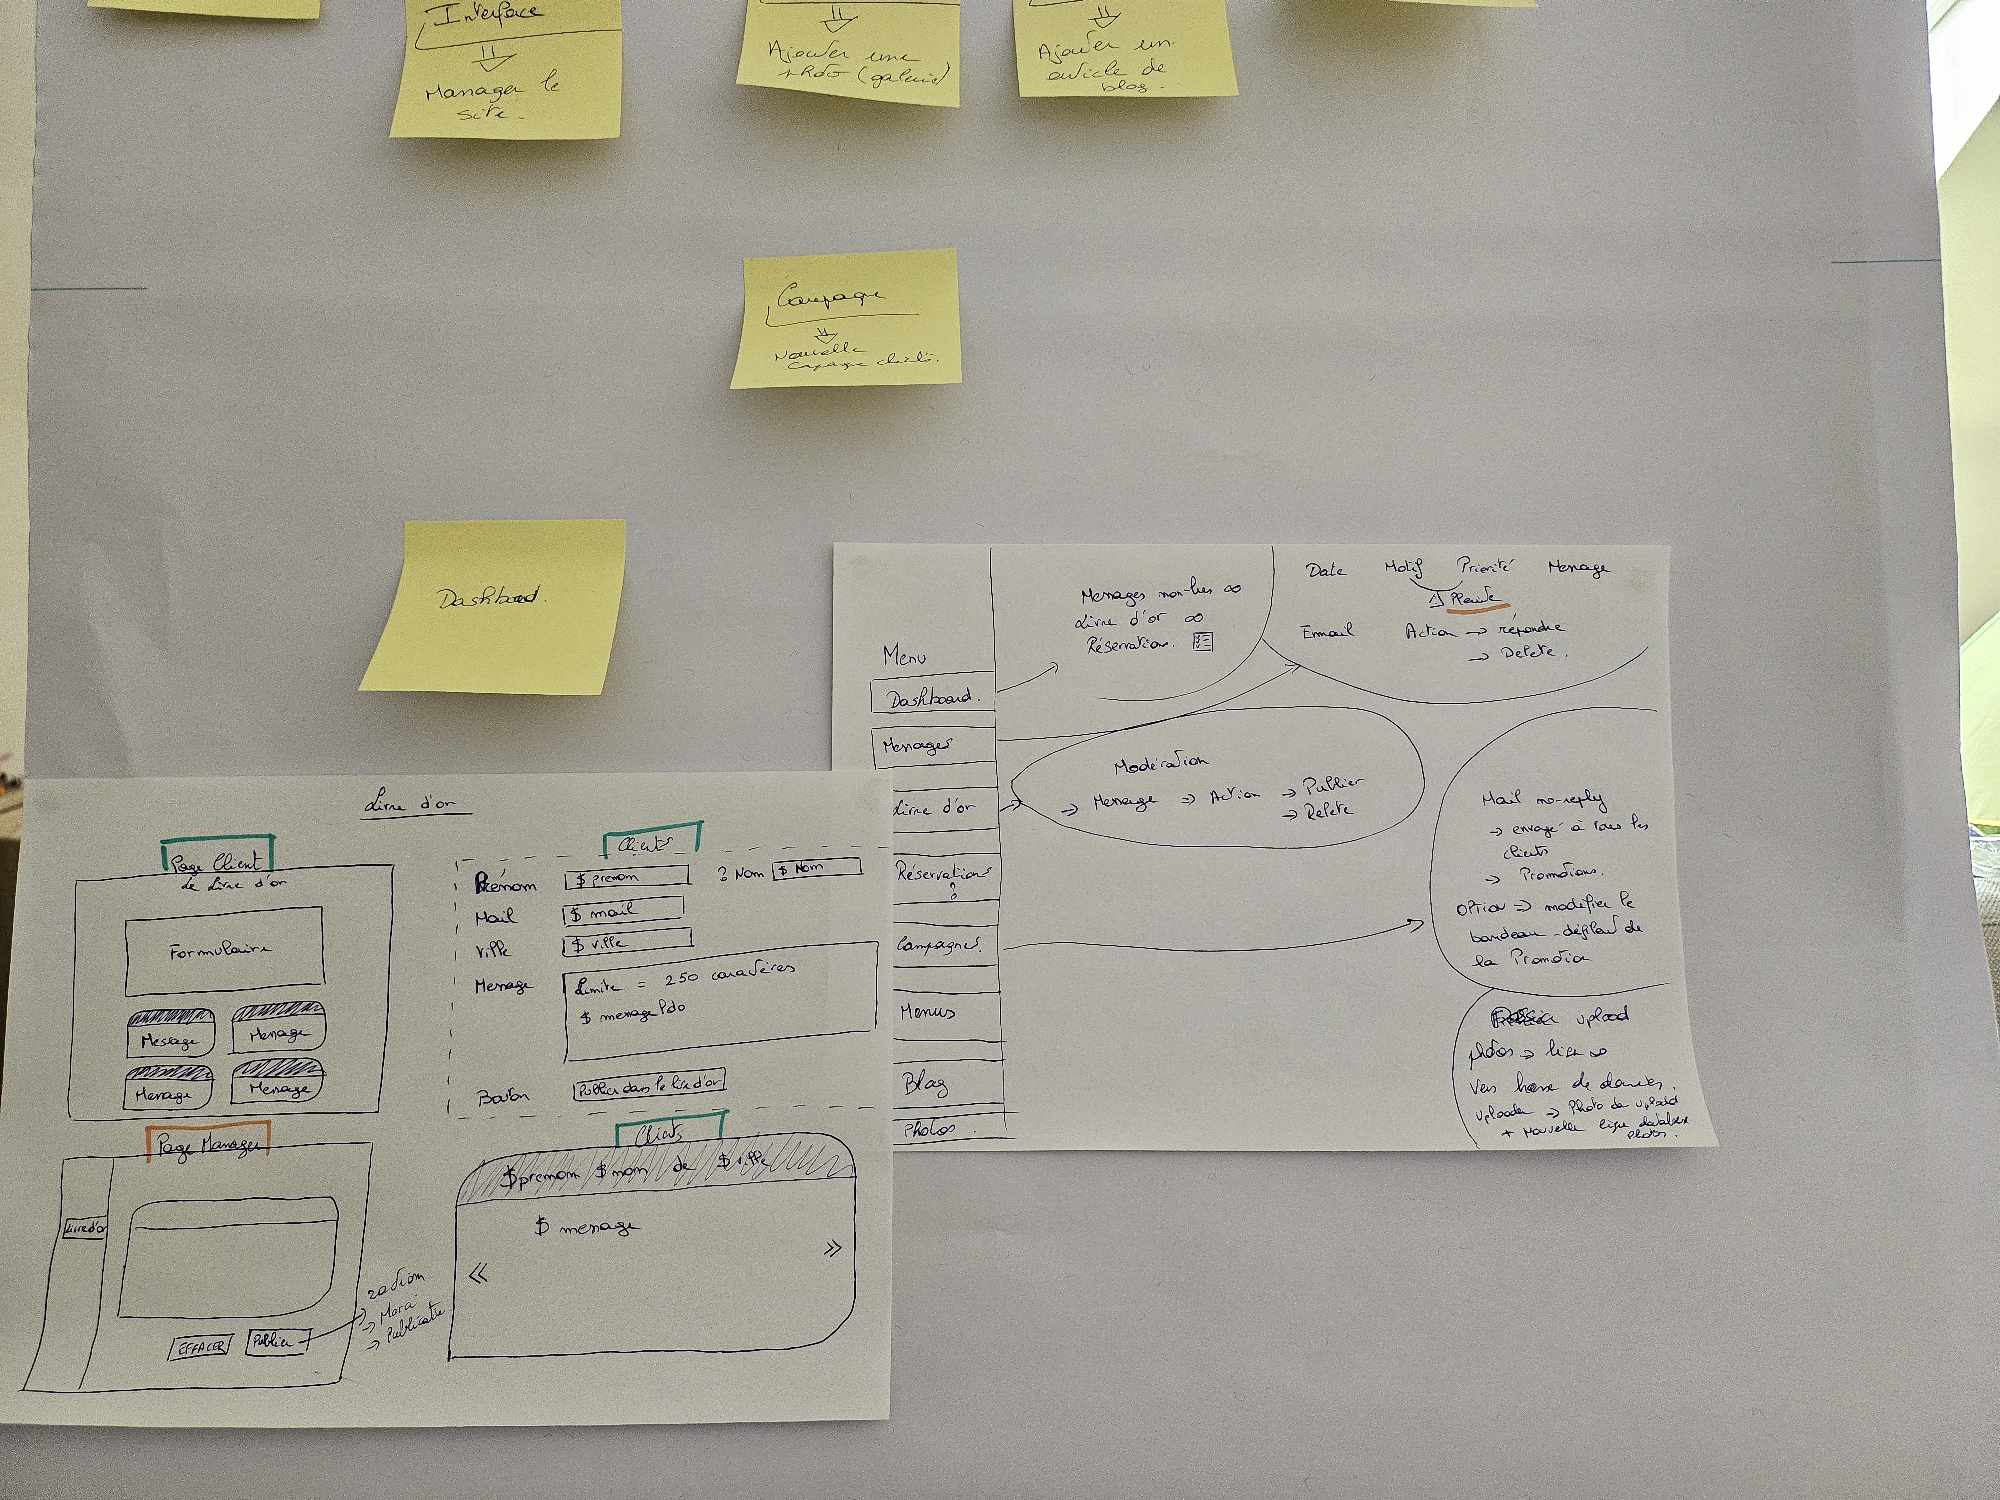 Interface
Manager le
site.
Ajouter une
photo (galerie)
Ajouter un
article de
blog.
Campagne
Nouvelle
campagne clients.
Dashboard.
Menu
Dashboard.
Messages
Livre d'or
Réservations
?
Campagnes.
Menus
Blog
Photos.
Messages non-lus ∞
Livre d'or ∞
Réservation.
Date Motif Priorité Message
Email Action → répondre
→ Delete.
Modération
→ Message → Action → Publier
→ Delete
Mail no-reply
→ envoyé à tous les
clients
→ Promotions.
Option → modifier le
bandeau défilant de
la Promotion
upload
photos → ligne ∞
Vers base de données.
uploader → Photo de upload
+ Nouvelle ligne database
photos.
Livre d'or
Page Client
de Livre d'or
Formulaire
Message Message
Message Message
Clients
Prénom $ prenom ? Nom $ Nom
Mail $ mail
Ville $ ville
Message Limite = 250 caractères
$ message
Bouton Publier dans le livre d'or
Page Manager
Livre d'or
EFFACER Publier
→ Publication
Clients
$ prenom $ nom de $ ville
$ message
« »